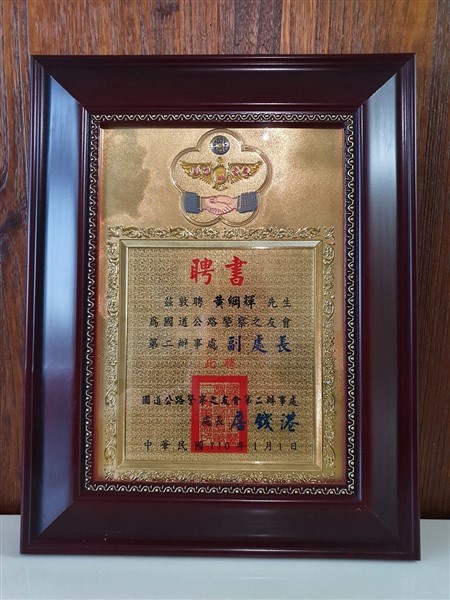 聘書
茲敦聘 黃綱輝 先生
為國道公路警察之友會
第二辦事處 副處長
此聘
國道公路警察之友會第二辦事處
處長 屠錢港
中華民國110年1月1日